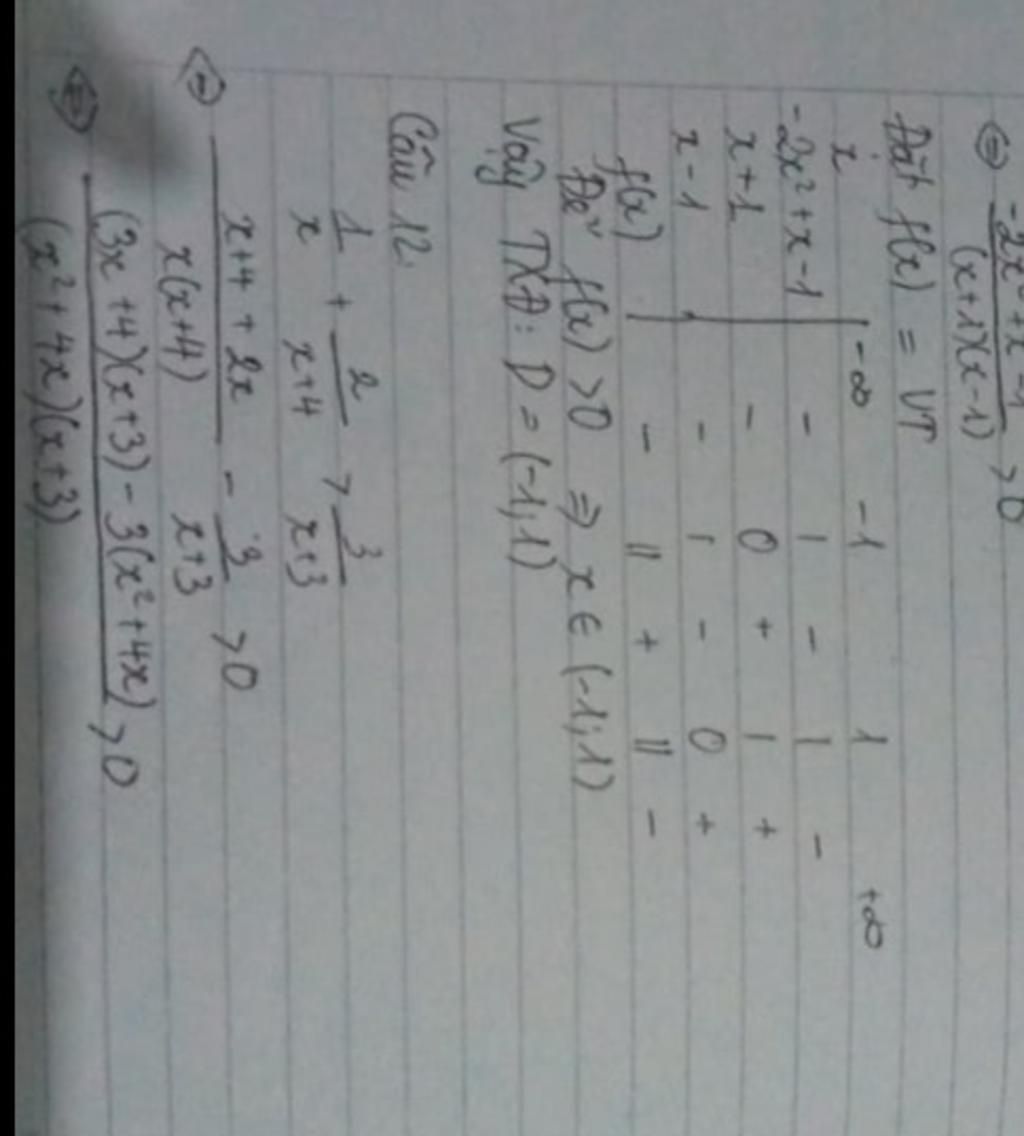 ⇔ -2x²+x-1 / (x+1)(x-1) > 0
Đặt f(x) = VT
x -∞ -1 1 +∞
-2x²+x-1 - | - | -
x+1 - 0 + | +
x-1 - | - 0 +
f(x) - || + || -
Để f(x) >0 ⇒ x ∈ (-1;1)
Vậy TXĐ: D = (-1;1)
Câu 12.
1/x + 2/x+4 > 3/x+3
⇔ x+4+2x / x(x+4) - 3/x+3 > 0
⇔ (3x+4)(x+3) - 3(x²+4x) / (x²+4x)(x+3) > 0